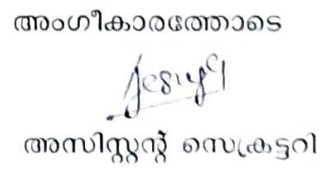 അംഗീകാരത്തോടെ
അസിസ്റ്റന്റ് സെക്രട്ടറി